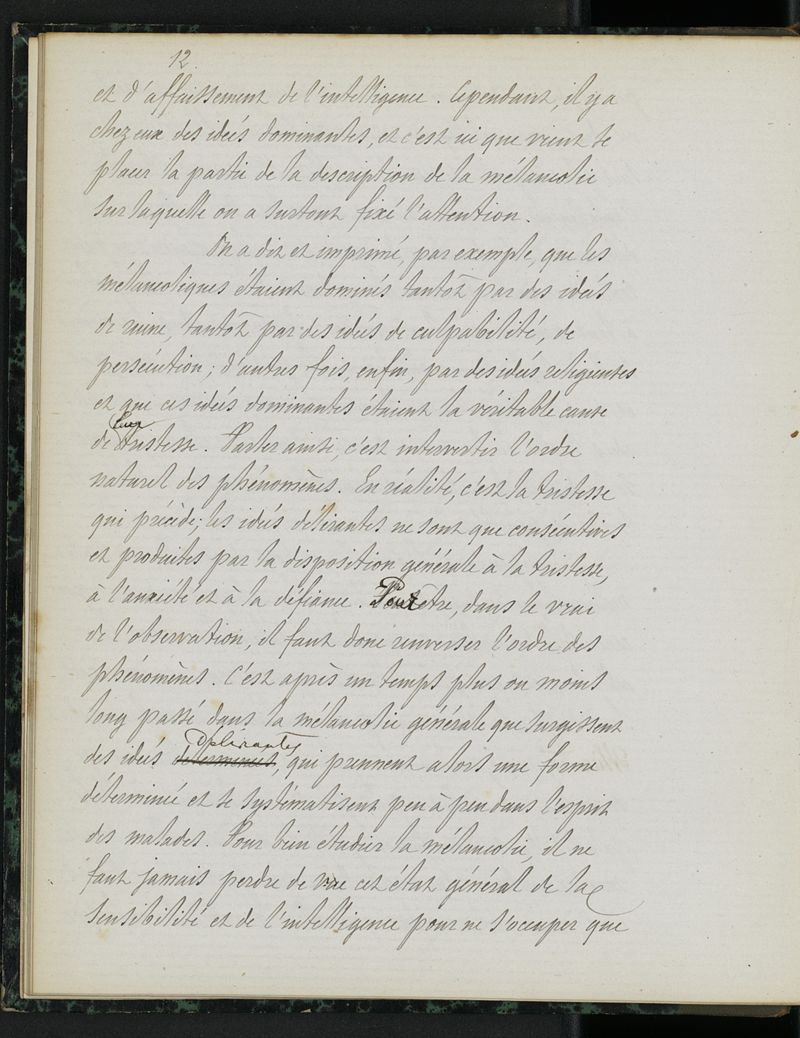 12
et d'affaissement de l'intelligence. Cependant, il y a
chez eux des idées dominantes, et c'est ici que vient se
placer la partie de la description de la mélancolie
sur laquelle on a surtout fixé l'attention.
On a dit et imprimé, par exemple, que les
mélancoliques étaient dominés tantôt par des idées
de ruine, tantôt par des idées de culpabilité, de
persécution; d'autres fois, enfin, par des idées religieuses
et que ces idées dominantes étaient la véritable cause
leur
de tristesse. Parler ainsi, c'est intervertir l'ordre
naturel des phénomènes. En réalité, c'est la tristesse
qui précède; les idées délirantes ne sont que consécutives
et produites par la disposition générale à la tristesse,
à l'anxiété et à la défiance. Pour être, dans le vrai
de l'observation, il faut donc renverser l'ordre des
phénomènes. C'est après un temps plus ou moins
long passé dans la mélancolie générale que surgissent
délirantes
des idées déterminées, qui prennent alors une forme
déterminée et se systématisent peu à peu dans l'esprit
des malades. Pour bien étudier la mélancolie, il ne
faut jamais perdre de vue cet état général de la
sensibilité et de l'intelligence pour ne s'occuper que